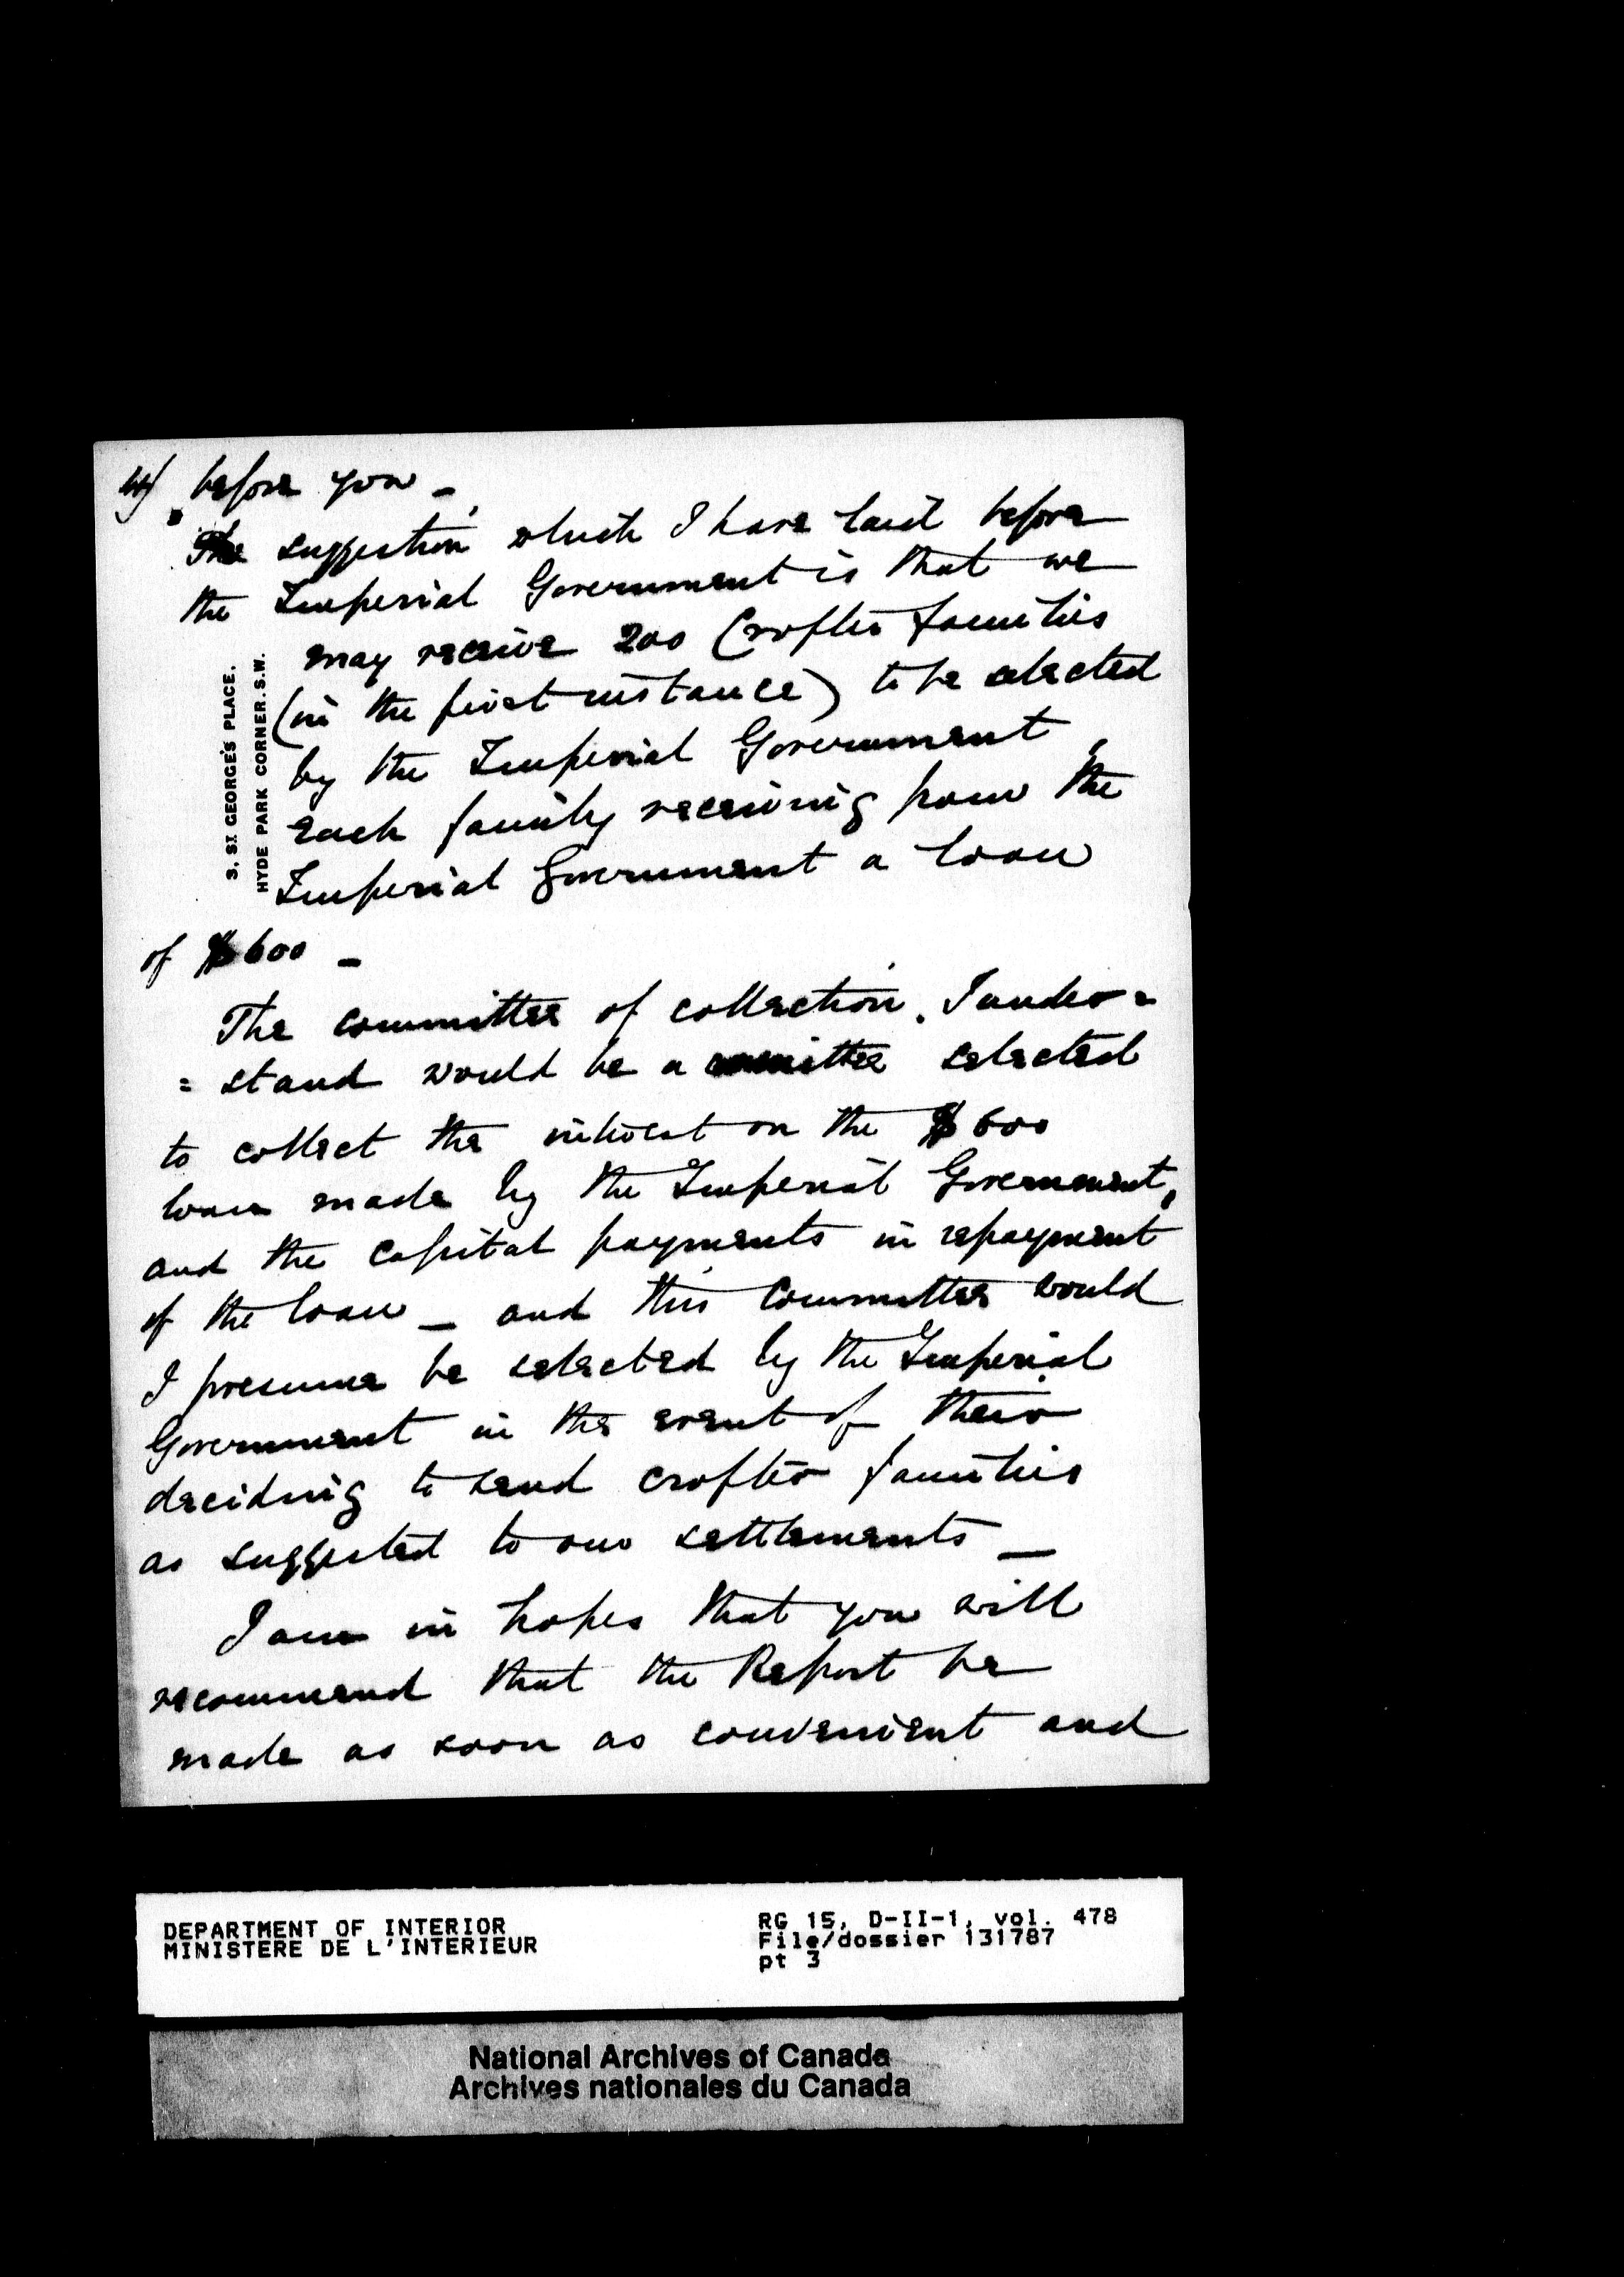 4) before you —
The suggestion which I have laid before
the Imperial Government is that we
may receive 200 Crofter families
(in the first instance) to be selected
by the Imperial Government,
each family receiving from the
Imperial Government a loan
of $600 —
S. ST. GEORGE'S PLACE.
HYDE PARK CORNER. S.W.
The committee of collection. I under=
=stand would be a committee selected
to collect the interest on the $600
loan made by the Imperial Government,
and the capital payments in repayment
of the loan — and this Committee would
I presume be selected by the Imperial
Government in the event of their
deciding to send crofter families
as suggested to our settlements —
I am in hopes that you will
recommend that the Report be
made as soon as convenient and
DEPARTMENT OF INTERIOR
MINISTERE DE L'INTERIEUR
RG 15, D-II-1, vol. 478
File/dossier 131787
pt 3
National Archives of Canada
Archives nationales du Canada